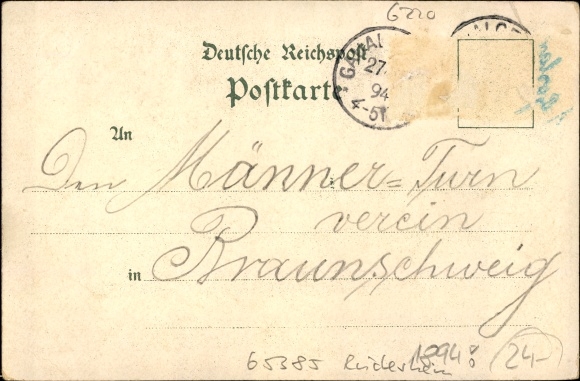 6220
Deutsche Reichspost
Postkarte
27.
94
4-5N
An
Den Männer=Turn
verein
in Braunschweig
65385 Rüdesheim 1894! 24-